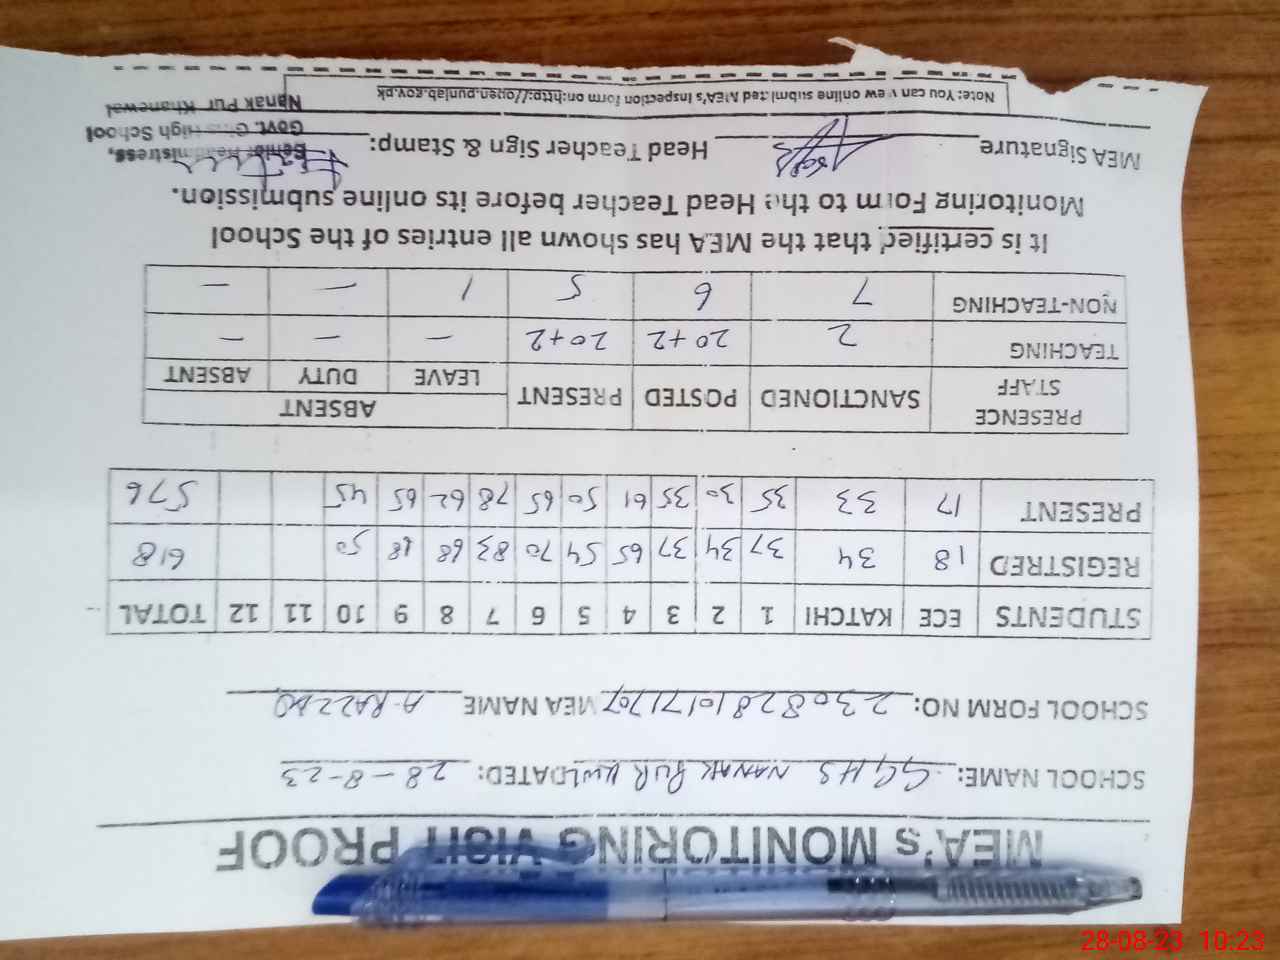 MEA's MONITORING VISIT PROOF
SCHOOL NAME: GGHS NANAK PUR KWL DATED: 28-8-23
SCHOOL FORM NO: 23082810171707 MEA NAME A-RAZZAQ
STUDENTS ECE KATCHI 1 2 3 4 5 6 7 8 9 10 11 12 TOTAL
REGISTRED 18 34 37 34 37 65 54 70 83 68 68 50 618
PRESENT 17 33 35 30 35 61 50 65 78 62 65 45 576
PRESENCE STAFF SANCTIONED POSTED PRESENT ABSENT
LEAVE DUTY ABSENT
TEACHING 2 20+2 20+2 — — —
NON-TEACHING 7 6 5 1 — —
It is certified that the MEA has shown all entries of the School
Monitoring Form to the Head Teacher before its online submission.
MEA Signature Head Teacher Sign & Stamp:
Senior Headmistress,
Govt. Girls High School
Nanak Pur Khanewal
Note: You can view online submitted MEA's Inspection form on:http://open.punjab.gov.pk
28-08-23 10:23